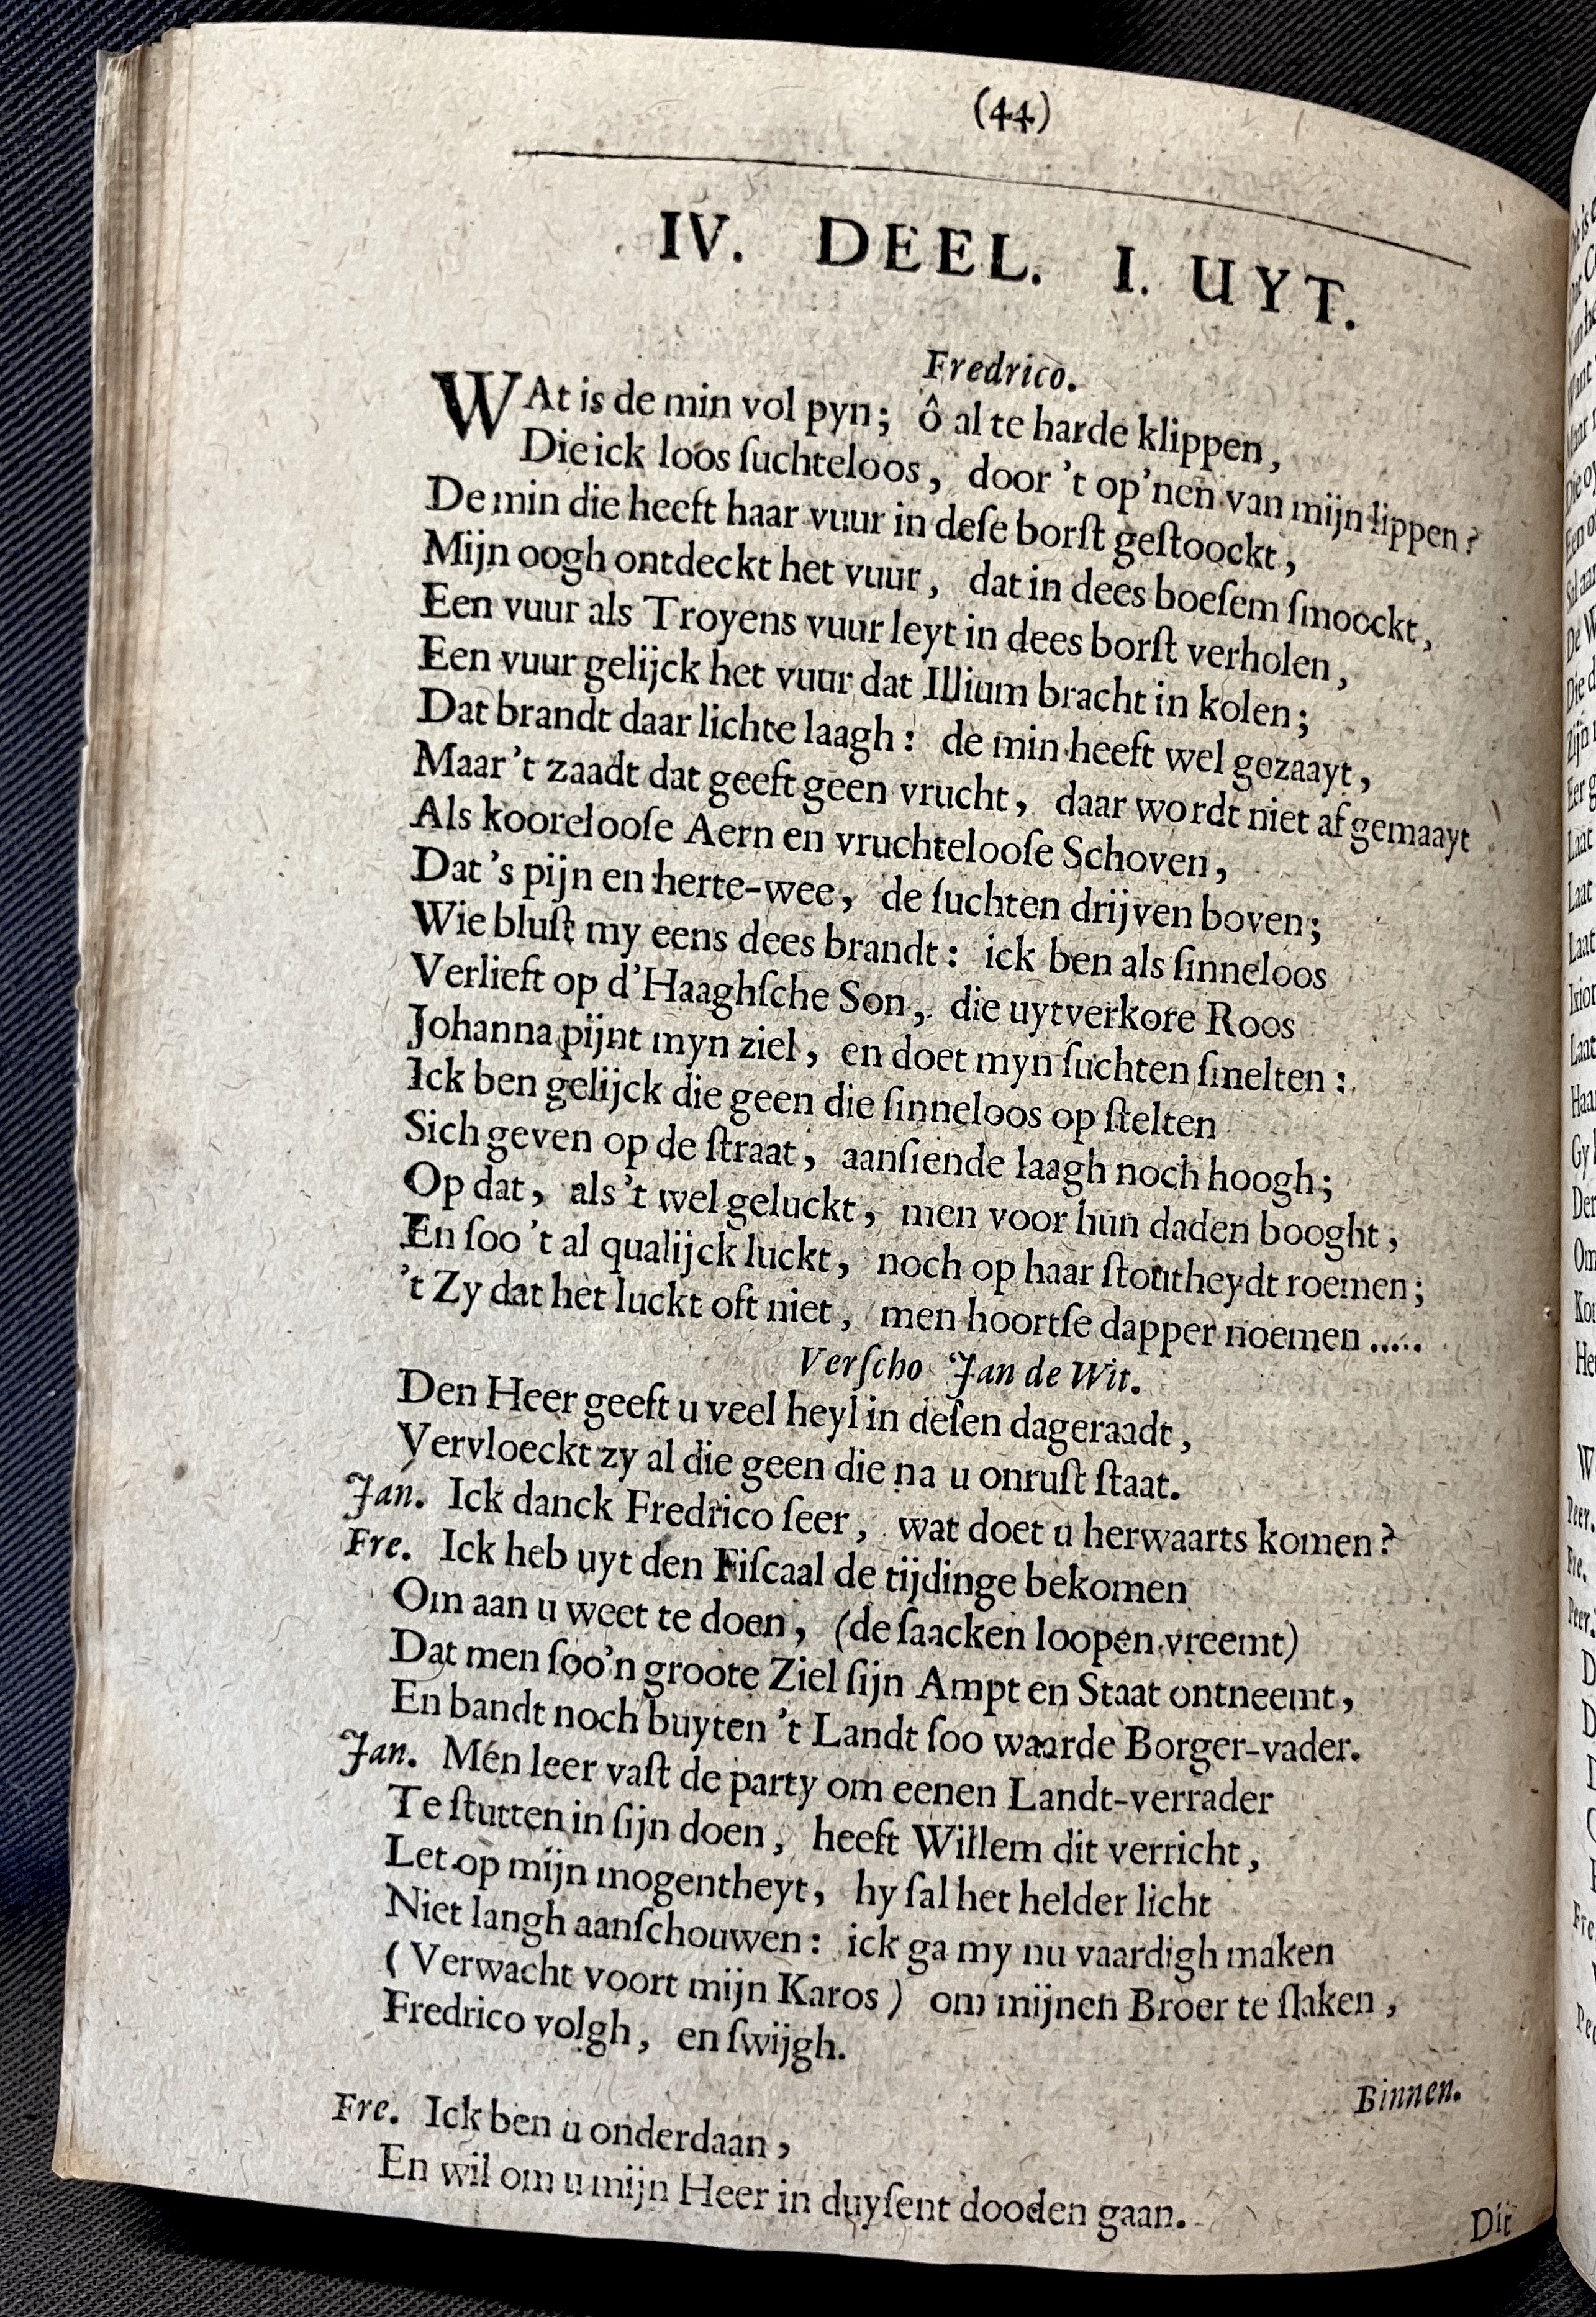 (44)
IV. DEEL. I. UYT.
Fredrico.
WAt is de min vol pyn; ô al te harde klippen,
Die ick loos ſuchteloos, door 't op'nen van mijn lippen?
De min die heeft haar vuur in deſe borſt geſtoockt,
Mijn oogh ontdeckt het vuur, dat in dees boeſem ſmoockt,
Een vuur als Troyens vuur leyt in dees borſt verholen,
Een vuur gelijck het vuur dat Illium bracht in kolen;
Dat brandt daar lichte laagh: de min heeft wel gezaayt,
Maar 't zaadt dat geeft geen vrucht, daar wordt niet af gemaayt
Als koorelooſe Aern en vruchtelooſe Schoven,
Dat 's pijn en herte-wee, de ſuchten drijven boven;
Wie bluſt my eens dees brandt: ick ben als ſinneloos
Verlieft op d'Haaghſche Son, die uytverkore Roos
Johanna pijnt myn ziel, en doet myn ſuchten ſmelten:
Ick ben gelijck die geen die ſinneloos op ſtelten
Sich geven op de ſtraat, aanſiende laagh noch hoogh;
Op dat, als 't wel geluckt, men voor hun daden booght,
En ſoo 't al qualijck luckt, noch op haar ſtoutheydt roemen;
't Zy dat het luckt oft niet, men hoortſe dapper noemen .....
Verſcho Jan de Wit.
Den Heer geeft u veel heyl in deſen dageraadt,
Vervloeckt zy al die geen die na u onruſt ſtaat.
Jan. Ick danck Fredrico ſeer, wat doet u herwaarts komen?
Fre. Ick heb uyt den Fiſcaal de tijdinge bekomen
Om aan u weet te doen, (de ſaacken loopen vreemt)
Dat men ſoo'n groote Ziel ſijn Ampt en Staat ontneemt,
En bandt noch buyten 't Landt ſoo waarde Borger-vader.
Jan. Men leer vaſt de party om eenen Landt-verrader
Te ſtutten in ſijn doen, heeft Willem dit verricht,
Let op mijn mogentheyt, hy ſal het helder licht
Niet langh aanſchouwen: ick ga my nu vaardigh maken
(Verwacht voort mijn Karos) om mijnen Broer te ſlaken,
Fredrico volgh, en ſwijgh.
Binnen.
Fre. Ick ben u onderdaan,
En wil om u mijn Heer in duyſent dooden gaan.
Dit